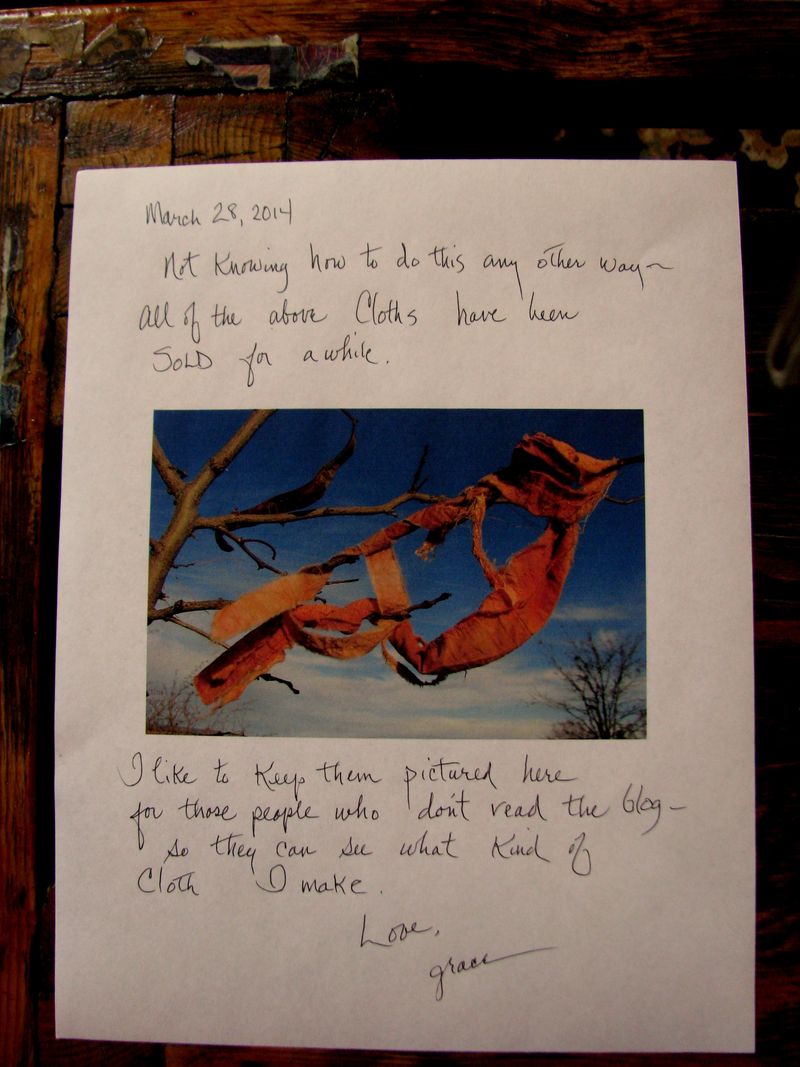 March 28, 2014
Not Knowing how to do this any other way~
all of the above Cloths have been
SOLD for awhile.
I like to Keep them pictured here
for those people who don't read the blog—
so they can see what Kind of
Cloth I make.
Love,
grace